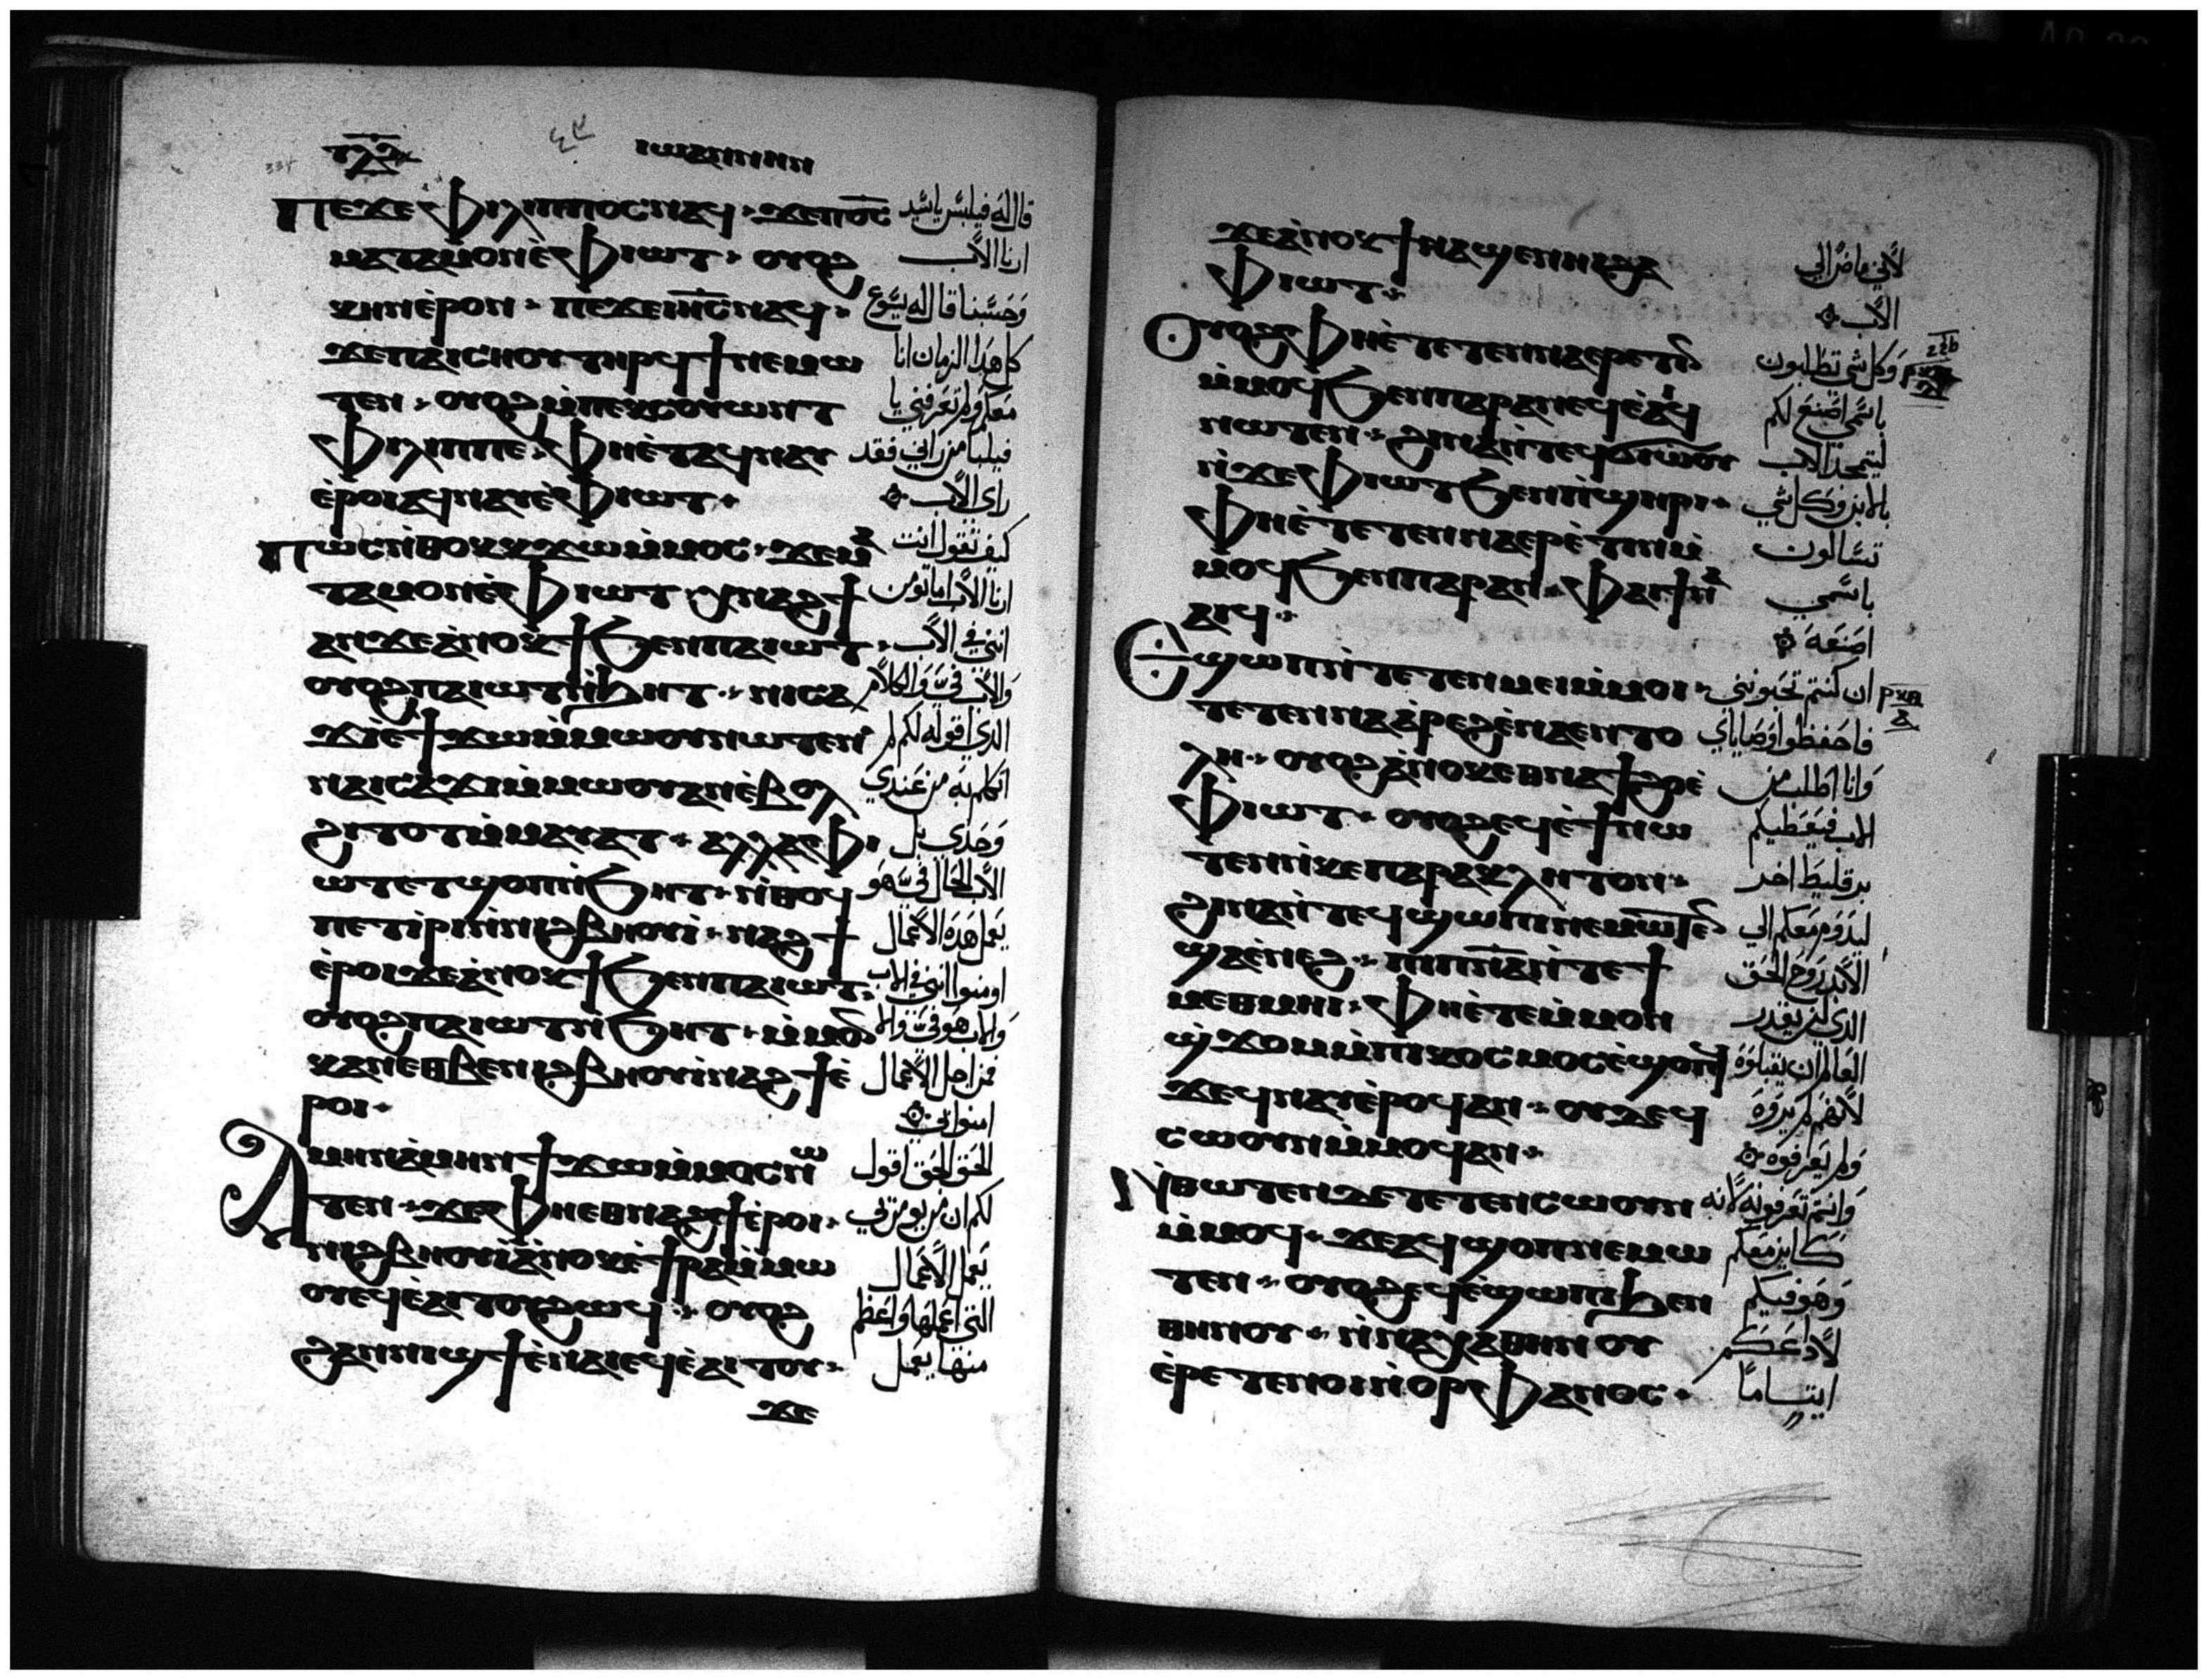 ⲓⲱⲁⲛⲛⲏⲛ
Ⲡⲉϫⲉ Ⲫⲓⲗⲓⲡⲡⲟⲥ ⲛⲁϥ · ϫⲉ ⲡⲟ̅ⲥ̅ قال له فيلبس يا سيد
ⲙⲁⲧⲁⲙⲟⲛ ⲉ̀Ⲫⲓⲱⲧ · ⲟⲩⲟϩ ارنا الاب
ⲕⲏⲛ ⲉ̀ⲣⲟⲛ · ⲡⲉϫⲉ ⲓⲏ̅ⲥ̅ ⲛⲁϥ · وحسبنا قال له يسوع
ϫⲉ ⲡⲁⲓⲥⲏⲟⲩ ⲧⲏⲣϥ ϯⲛⲉⲙⲱ كل هذا الزمان انا
ⲧⲉⲛ · ⲟⲩⲟϩ ⲙ̀ⲡⲉⲕⲥⲟⲩⲱⲛⲧ معكم ولم تعرفني يا
Ⲫⲓⲗⲓⲡⲡⲉ · Ⲫⲏⲉ̀ⲧⲁϥⲛⲁⲩ فيلبا من راني فقد
ⲉ̀ⲣⲟⲓ ⲁϥⲛⲁⲩ ⲉ̀Ⲫⲓⲱⲧ · راى الاب
Ⲡⲱⲥ ⲛ̀ⲑⲟⲕ ⲕϫⲱ ⲙ̀ⲙⲟⲥ · ϫⲉ ⲙⲁ كيف تقول انت
ⲧⲁⲙⲟⲛ ⲉ̀Ⲫⲓⲱⲧ · ⲭⲛⲁϩϯ ارنا الاب اما تومن
ⲁⲛ ϫⲉ ⲁ̀ⲛⲟⲕ ϯϧⲉⲛ ⲡⲁⲓⲱⲧ · انني في الاب
ⲟⲩⲟϩ ⲡⲁⲓⲱⲧ ⲛ̀ϧⲏⲧ · ⲛⲓⲥⲁ والاب في والكلام
ϫⲓ ⲉ̀ϯϫⲱ ⲙ̀ⲙⲱⲟⲩ ⲛⲱⲧⲉⲛ الذي اقوله لكم لم
ⲛⲁⲓⲥⲁϫⲓ ⲙ̀ⲙⲱⲟⲩ ⲁⲛ ⲉ̀ⲃⲟⲗ اتكلم به من عندي
ϩⲓⲧⲟⲧ ⲙ̀ⲙⲁⲩⲁⲧ · ⲁⲗⲗⲁ Ⲫⲓ وحدي بل
ⲱⲧ ⲉⲧϣⲟⲡ ⲛ̀ϧⲏⲧ · ⲛ̀ⲑⲟϥ الاب الحال في هو
ⲡⲉⲧⲓ̀ⲣⲓ ⲛ̀ⲛⲓϩⲃⲏⲟⲩⲓ̀ · ⲛⲁϩϯ يعمل هذه الاعمال
ⲉ̀ⲣⲟⲓ ϫⲉ ⲁ̀ⲛⲟⲕ ϯϧⲉⲛ ⲡⲁⲓⲱⲧ · اومنوا انني في الاب
ⲟⲩⲟϩ ⲡⲁⲓⲱⲧ ⲛ̀ϧⲏⲧ · ⲙ̀ⲙⲟⲛ والاب هو في والا
ⲕⲁⲛ ⲉⲑⲃⲉ ⲛⲓϩⲃⲏⲟⲩⲓ̀ ⲛⲁϩϯ ⲉ̀ فمن اجل الاعمال
ⲣⲟⲓ · امنوا بي
Ⲁⲙⲏⲛ ⲁ̀ⲙⲏⲛ ϯϫⲱ ⲙ̀ⲙⲟⲥ ⲛⲱ الحق الحق اقول
ⲧⲉⲛ · ϫⲉ Ⲫⲏⲉⲑⲛⲁϩϯ ⲉ̀ⲣⲟⲓ · لكم ان من يومن بي
ⲛⲓϩⲃⲏⲟⲩⲓ̀ ⲁ̀ⲛⲟⲕ ⲉ̀ϯⲣⲁ ⲙ̀ⲙⲱ يعمل الاعمال
ⲟⲩ ⲉϥⲉ̀ⲁⲓⲧⲟⲩ ϩⲱϥ · ⲟⲩⲟϩ التي اعملها واعظم
ϩⲁⲛⲛⲓϣϯ ⲉ̀ⲛⲁⲓ ⲉϥⲉ̀ⲁⲓⲧⲟⲩ · منها يعمل
ϫⲉ
ϫⲉ ⲁ̀ⲛⲟⲕ ϯⲛⲁϣⲉⲛⲏⲓ ϩⲁ لاني ماض الي
Ⲫⲓⲱⲧ · الاب
Ⲟⲩⲟϩ Ⲫⲏⲉ̀ⲧⲉⲧⲉⲛⲛⲁⲉⲣⲉⲧⲓⲛ وكل شي تطلبون
ⲙ̀ⲙⲟϥ ϧⲉⲛ ⲡⲁⲣⲁⲛ ⲉϥⲉ̀ⲁⲓϥ باسمي اصنع لكم
ⲛⲱⲧⲉⲛ · ϩⲓⲛⲁ ⲛ̀ⲧⲉϥϭⲓⲱ̀ⲟⲩ ليتمجد الاب
ⲛ̀ϫⲉ Ⲫⲓⲱⲧ ϧⲉⲛ ⲡ̀ϣⲏⲣⲓ · بالابن وكل شي
Ⲫⲏⲉ̀ⲧⲉⲧⲉⲛⲛⲁⲉⲣⲉ̀ⲧⲓⲛ ⲙ̀ تسالون
ⲙⲟϥ ϧⲉⲛ ⲡⲁⲣⲁⲛ · Ⲫⲁⲓ ϯⲛⲁ باسمي
ⲁⲓϥ · اصنعه
Ⲉϣⲱⲡ ⲧⲉⲧⲉⲛⲙⲉⲓ ⲙ̀ⲙⲟⲓ · ان كنتم تحبونني
ⲧⲉⲧⲉⲛⲛⲁⲁ̀ⲣⲉϩ ⲉ̀ⲛⲁⲉⲛⲧⲟ فاحفظوا وصاياي
ⲗⲏ · ⲟⲩⲟϩ ⲁ̀ⲛⲟⲕ ⲉⲑⲛⲁϯϩⲟ ⲉ̀ وانا اطلب من
Ⲫⲓⲱⲧ · ⲟⲩⲟϩ ⲉϥⲉ̀ϯ ⲛⲱ الاب فيعطيكم
ⲧⲉⲛ ⲛ̀ⲕⲉⲡⲁⲣⲁⲕⲗⲏⲧⲟⲛ · برقليط اخر
ϩⲓⲛⲁ ⲛ̀ⲧⲉϥϣⲱⲡⲓ ⲛⲉⲙⲱⲧⲉⲛ ليدوم معكم الي
ϣⲁ ⲉ̀ⲛⲉϩ · ⲡⲓⲡⲛ̅ⲁ̅ ⲛ̀ⲧⲉ ϯ الابد روح الحق
ⲙⲉⲑⲙⲏⲓ · Ⲫⲏⲉ̀ⲧⲉ ⲙ̀ⲙⲟⲛ الذي لن يقدر
ϣ̀ϫⲟⲙ ⲙ̀ⲡⲓⲕⲟⲥⲙⲟⲥ ⲉ̀ϣⲟⲡϥ العالم ان يقبلوه
ϫⲉ ϥⲛⲁⲩ ⲉ̀ⲣⲟϥ ⲁⲛ · ⲟⲩⲇⲉ ϥ لانهم لم يروه
ⲥⲱⲟⲩⲛ ⲙ̀ⲙⲟϥ ⲁⲛ · ولم يعرفوه
Ⲛ̀ⲑⲱⲧⲉⲛ ⲇⲉ ⲧⲉⲧⲉⲛⲥⲱⲟⲩⲛ وانتم تعرفونه لانه
ⲙ̀ⲙⲟϥ · ϫⲉ ⲁϥϣⲟⲡ ⲛⲉⲙⲱ كاين معكم
ⲧⲉⲛ · ⲟⲩⲟϩ ⲉϥⲉ̀ϣⲱⲡⲓ ϧⲉⲛ وهو فيكم
ⲑⲏⲛⲟⲩ · ⲛ̀ⲛⲁⲭⲁ ⲑⲏⲛⲟⲩ لا ادعكم
ⲉ̀ⲣⲉⲧⲉⲛⲟⲓ ⲛ̀ⲟⲣⲫⲁⲛⲟⲥ · ايتاما